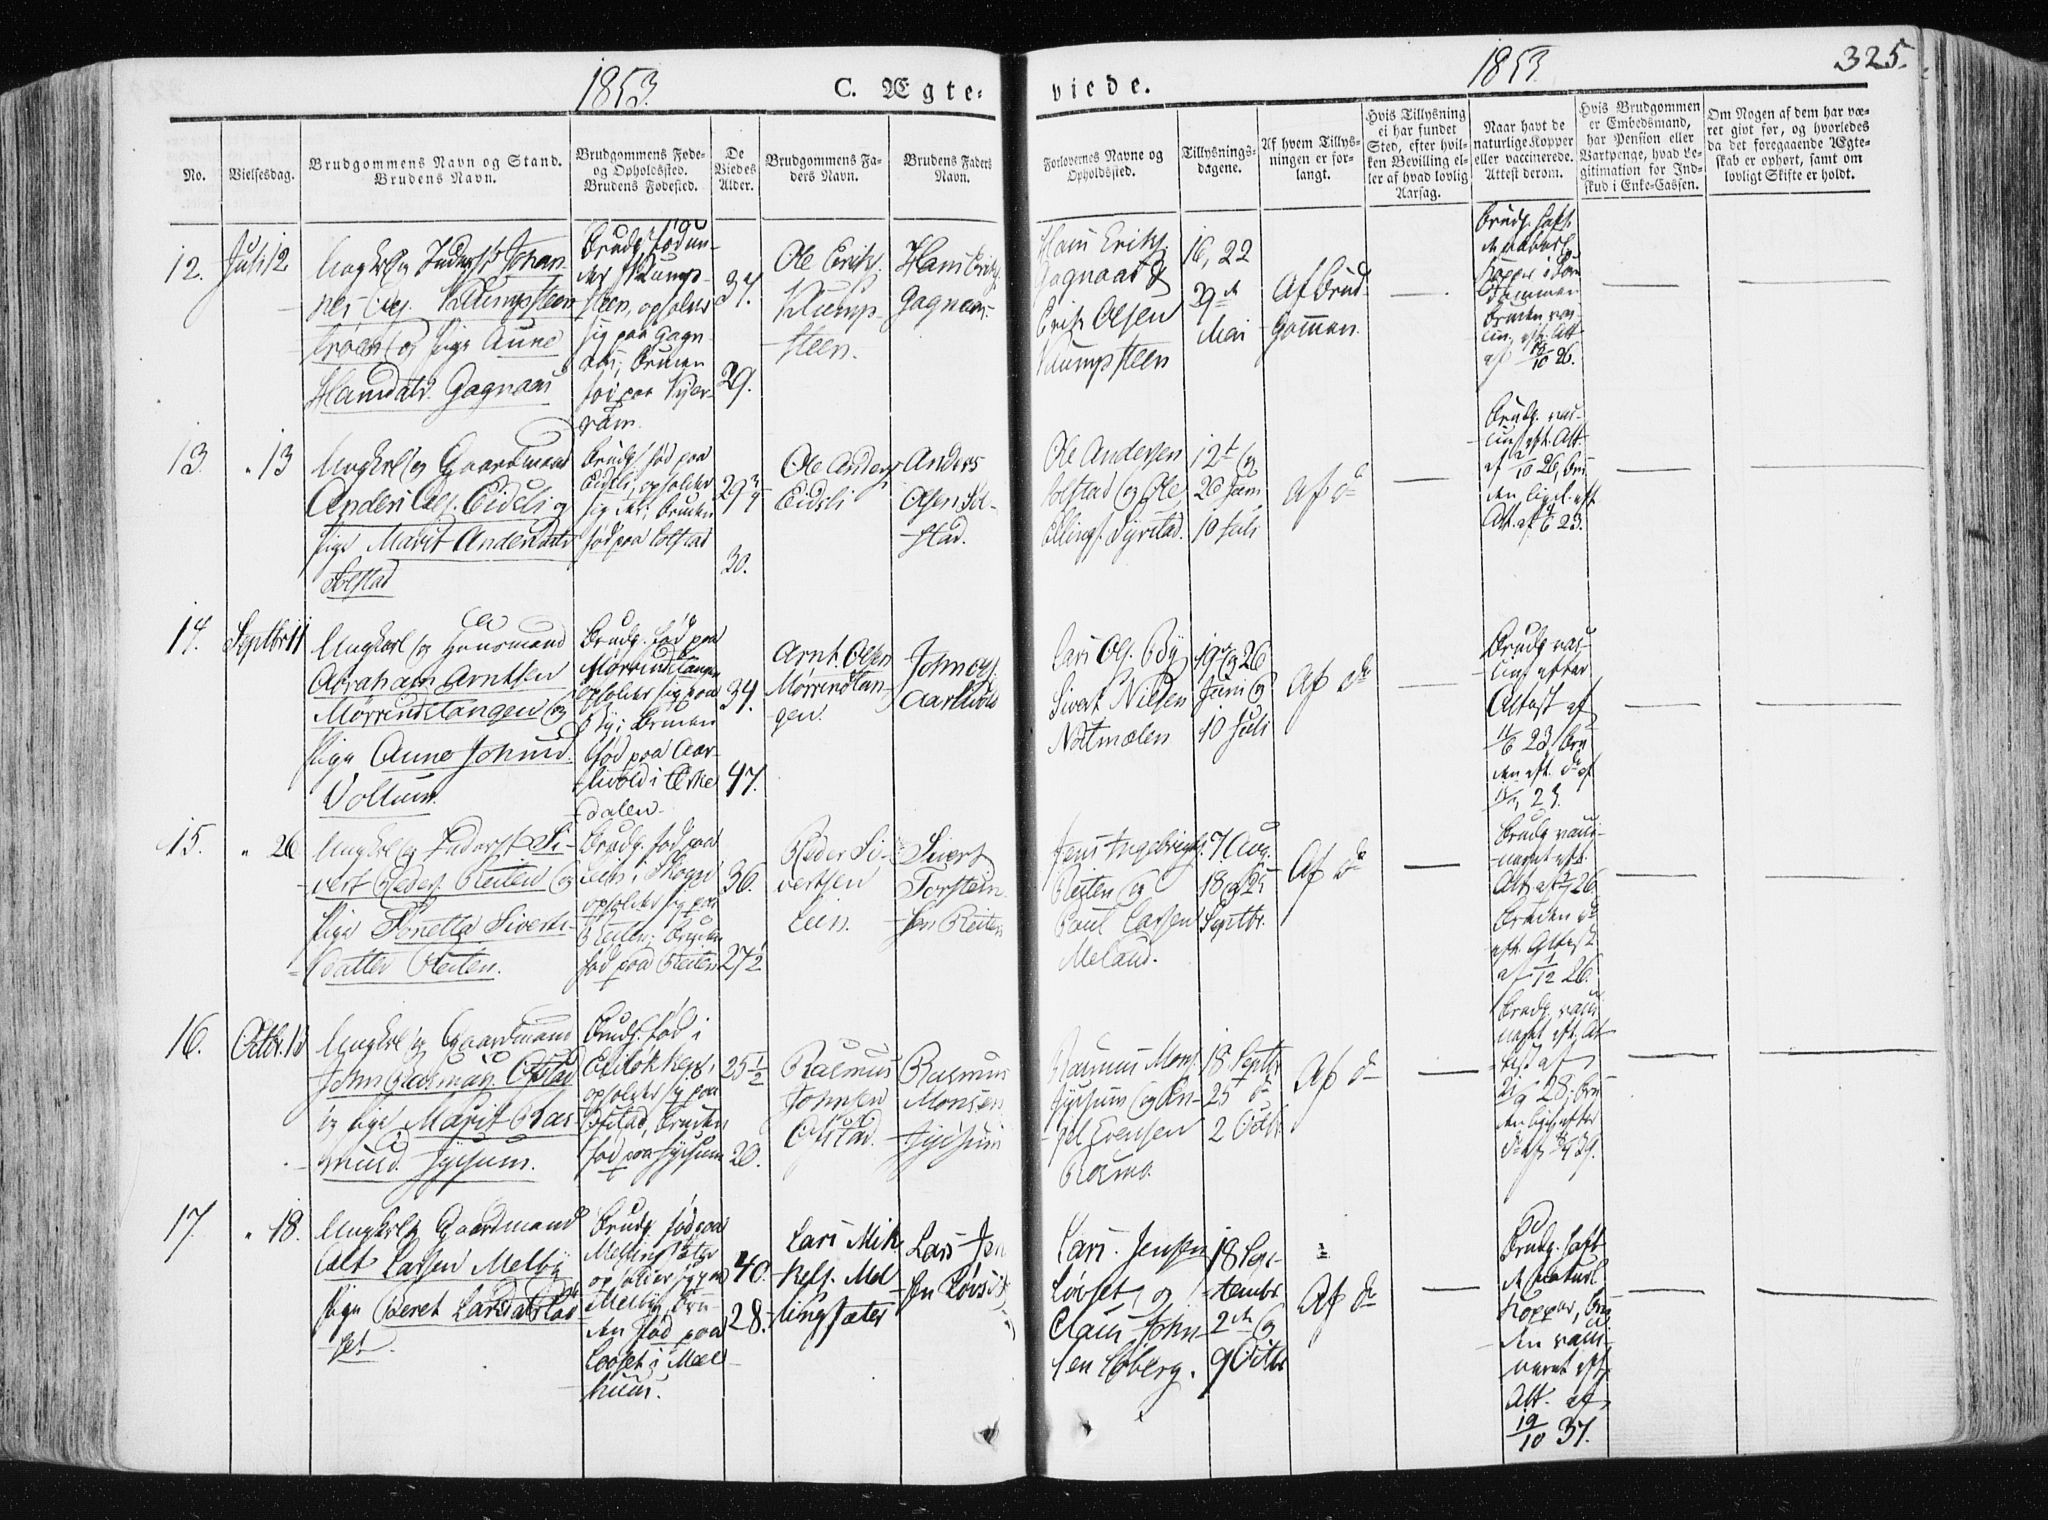 1853.
C. Ægte-
viede.
1853
325.
No.
Vielsesdag.
Brudgommens Navn og Stand.
Brudens Navn.
Brudgommens Føde-
og Opholdssted.
Brudens Fødested.
De
Viedes
Alder.
Brudgommens Fa-
ders Navn.
Brudens Faders
Navn.
Forlovernes Navne og
Opholdssted.
Tillysnings-
dagene.
Af hvem Tillys-
ningen er for-
langt.
Hvis Tillysning
ei har fundet
Sted, efter hvil-
ken Bevilling el-
ler af hvad lovlig
Aarsag.
Naar havt de
naturlige Kopper
eller vaccinerede.
Attest derom.
Hvis Brudgommen
er Embedsmand,
har Pension eller
Vartpenge, hvad Le-
gitimation for Ind-
skud i Enke-Cassen.
Om Nogen af dem har væ-
ret givt før, og hvorledes
da det foregaaende Ægte-
skab er ophørt, samt om
lovligt Skifte er holdt.
12.
Juli 12
Ungkarl og Inderst Johan-
nes Ols. Klumpsteen
og Pige Aune
Hansdatr. Gagnaas
Brudg. født
steen, opholder
sig paa Gagn-
aas; Bruden
født paa
34.
29.
Ole Eriks.
Klump-
steen.
Hans Eriks.
Gagnaas.
Hans Eriks.
Gagnaas &
Erik Olsen
Klumpsteen
16, 22
29de
Mai
Af Brud-
gommen.
—
Brudg. haft
de naturl.
Kopper i Barn-
dommen
Bruden vac-
cin. efter Att.
af 10 26.
—
—
13.
" 13
Ungkarl og Gaardmand
Anders Ols. Eidsli og
Pige Marit Andersdatr
Solstad
Brudg. født paa
Eidsli, opholder
sig der; Bruden
født paa Solstad
29 3/4
30.
Ole Anders.
Eidsli
Anders
Olsen Sol-
stad.
Ole Andersen
Solstad og Ole
Ellings. Syrstad.
12te og
26 Juni
10 Juli
Af do
—
Brudg. vac-
cin. eft. Att.
af 10 26, Bru-
den ligel. eft.
Att. af 23.
—
—
14.
Septbr 11
Ungkarl og Huusmand
Abraham Arntsen
Mørrindstangen og
Pige Aune Johnsd.
Vollum.
Brudg. født paa
Mørrindstangen
opholder sig paa
By; Bruden
født paa Aar-
livold i Ørke-
dalen.
34.
47.
Arnt. Olsen
Mørrindstan-
gen.
John Ols.
Aarlivold
Lars Ols. By
Sivert Nielsen
Nötmælen
19 og 26
Juni og
10 Juli
Af do
—
Brudg. vac-
cin. efter
Attest af
11/6 23, Bru-
den eft. do af
23.
—
—
15.
" 26
Ungkarl og Inderst Si-
vert Peders. Reiten og
Pige Sivert-
datter Reiten.
Brudg. født paa
Lien i Skogn
opholder sig paa
Reiten; Bruden
født paa Reiten
36.
27 1/2
Peder Si-
vertsen
Lien.
Sivert
Torstein-
sen Reiten
Jens Ingebrigts.
Reiten og
Paul Larsen
Meland.
7 Aug.
18 og 25
Septbr.
Af do
—
Brudg. vacci-
neret eft.
Att. af 26
Bruden do
eft. Attest
af 1/12 26.
—
—
16.
Octbr. 18
Ungkarl og Gaardmand
John Rasmus. Ofstad
og Pige Marit Ras-
musd. Jycsum.
Brudg. født i
opholder sig paa
Ofstad, Bruden
født paa Jycsum
25 1/2
20.
Rasmus
Johnsen
Ofstad.
Rasmus
Monsen
Jycsum
Rasmus Mons.
Jycsum og
Evensen
18 Septbr
25 do
2 Octbr.
Af do
—
Brudg. vacci-
neret eft. At-
test af
28; Bru-
den lig. efter
do af 39.
—
—
17.
" 18.
Ungkarl og Gaardmand
Larsen Melby
Pige Beret Larsdatr Løv-
set.
Brudg. født paa
Mellingsæter
opholder sig paa
Melby, Bru-
den født paa
Løvset i Mæl-
huus.
40.
28.
Lars Mik-
kels. Mel-
lingsæter
Lars Jen-
sen Løvset
Lars. Jensen
Løvset, og
Claus John-
sen Løberg.
18 Sep-
tembr.
2den og
9 Octbr
Af do
—
Brudg. haft
de naturl.
Kopper, Bru-
den vacci-
neret eft.
Att. af
19/10 37.
—
—